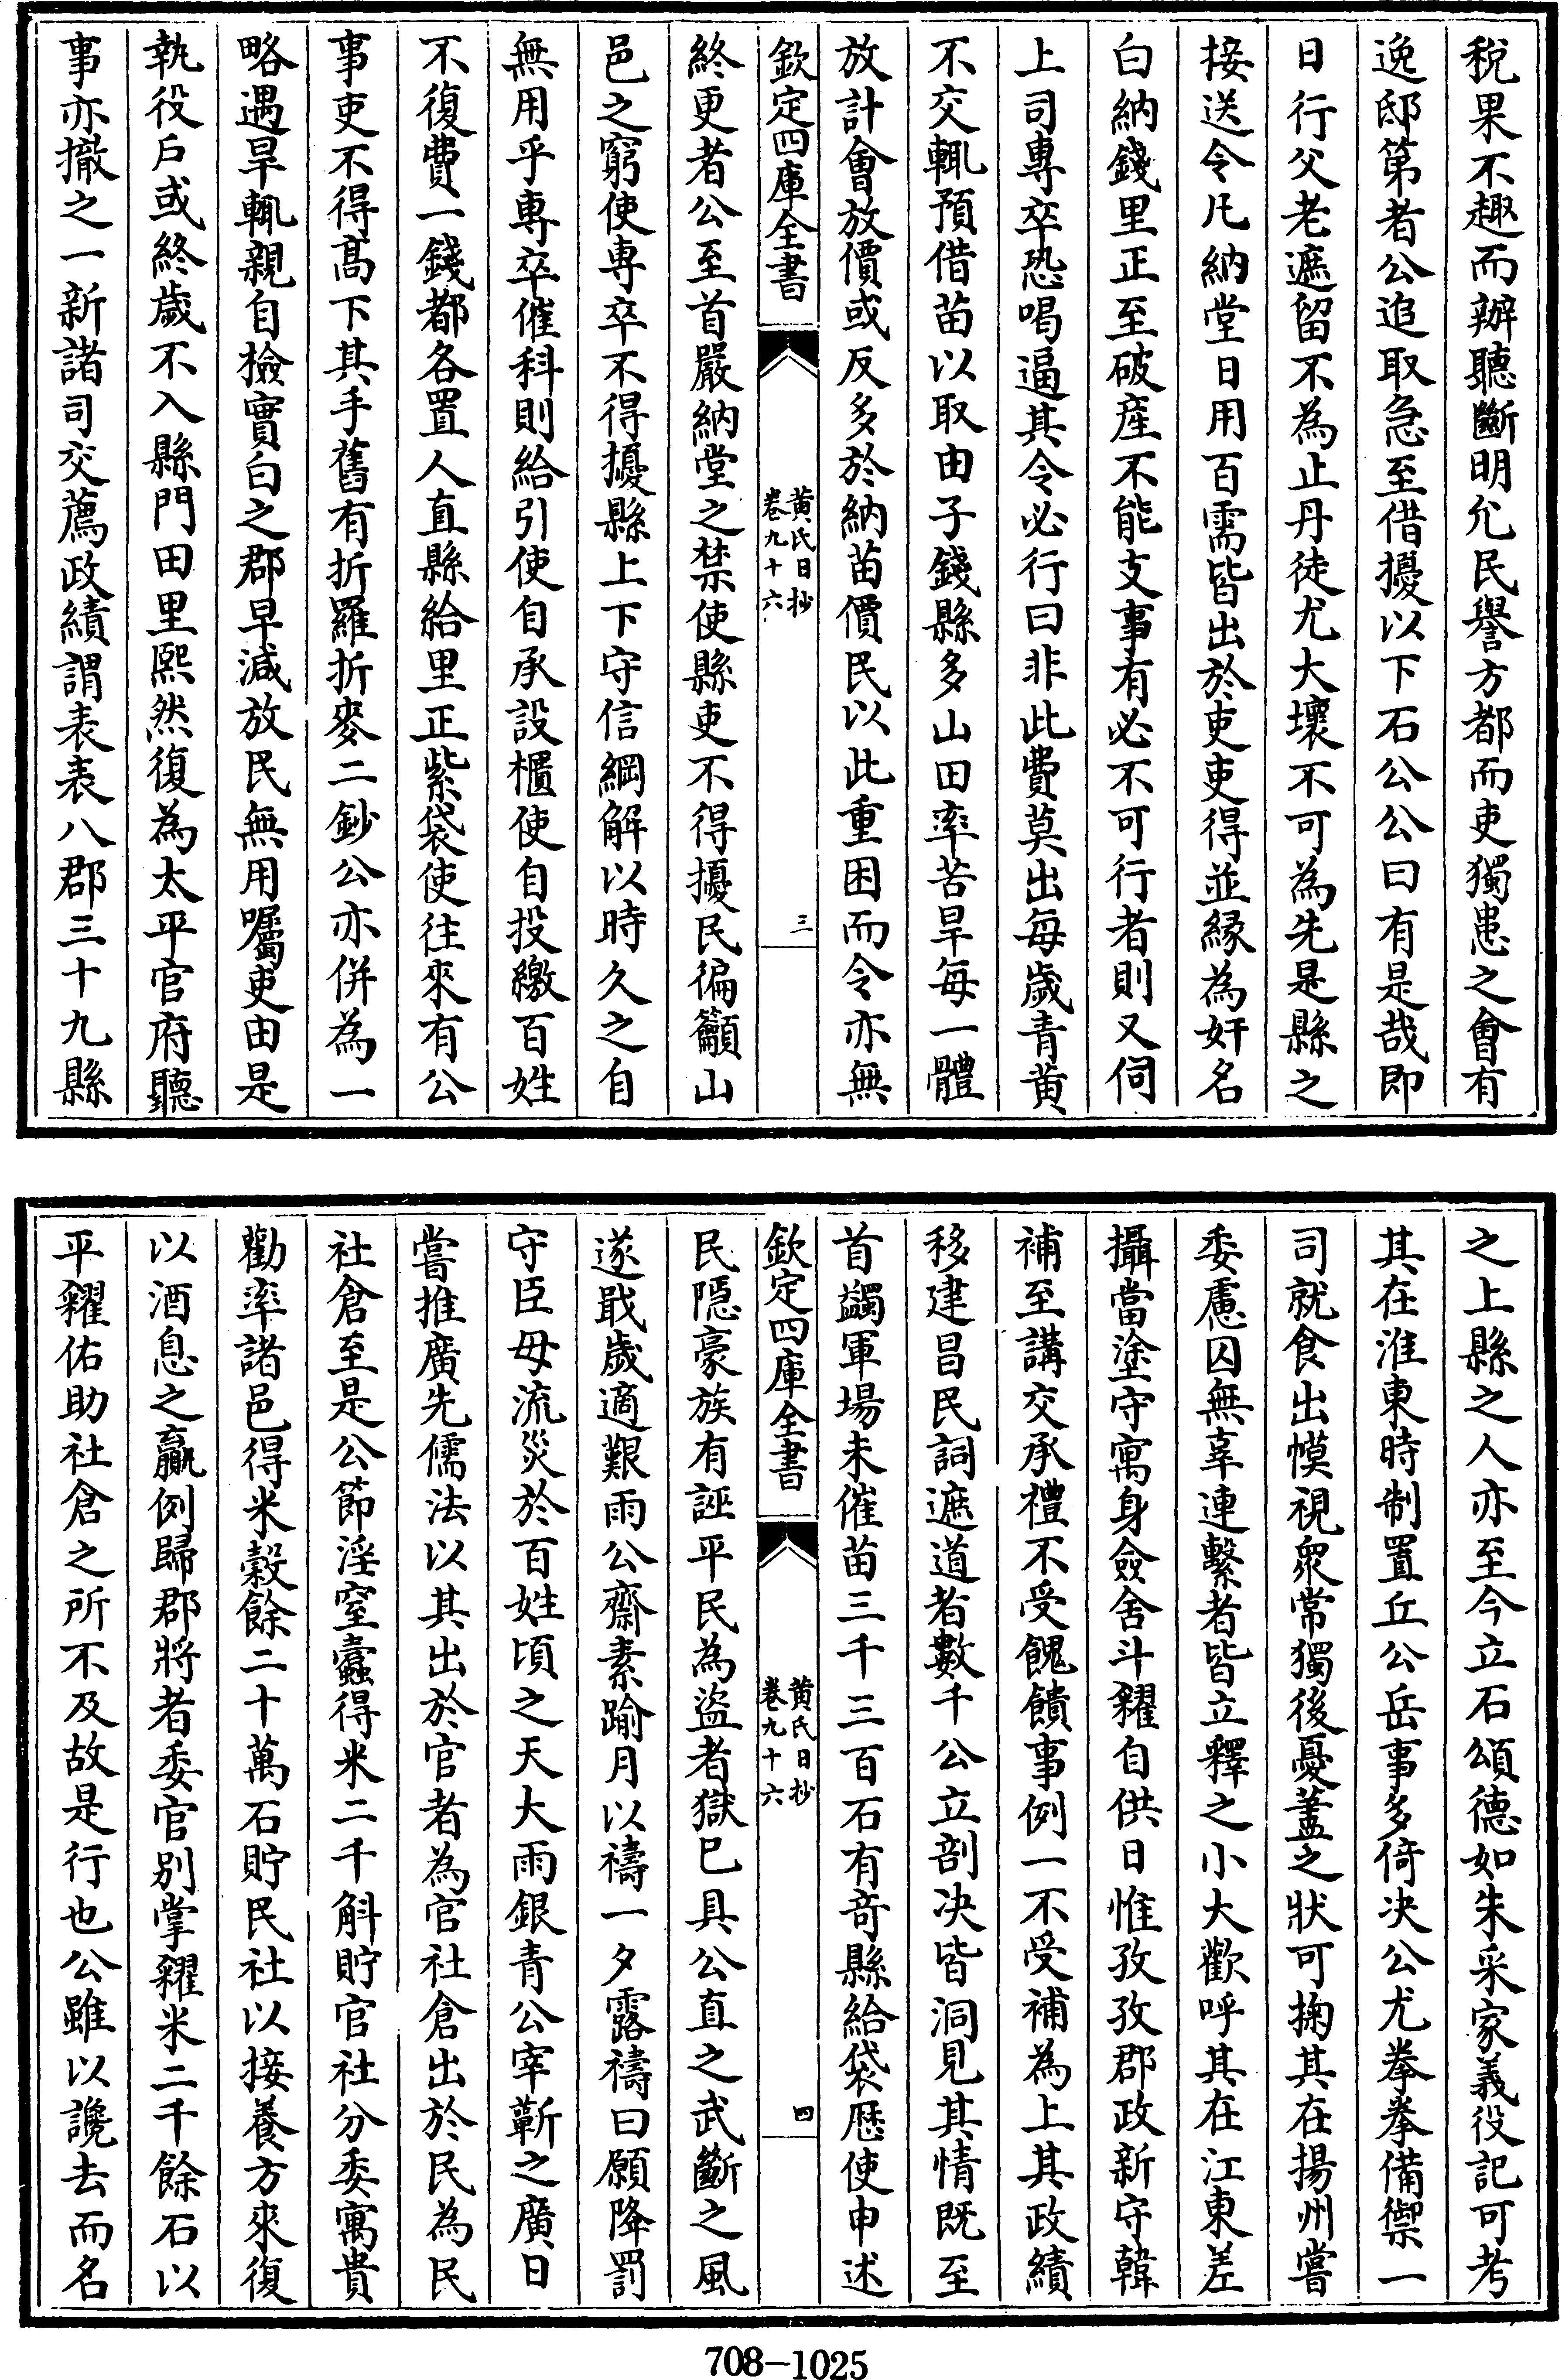 稅果不趣而辦聽斷明允民譽方都而吏獨患之會有
逸邸第者公追取急至借擾以下石公公曰有是哉即
日行父老遮留不為止丹徒尤大壞不可為先是縣之
接送令凡納堂日用百需皆出於吏吏得並緣為奸名
白納錢里正至破産不能支事有必不可行者則又伺
上司專卒恐喝逼其令必行曰非此費莫出每歲青黄
不交輒預借苗以取由子錢縣多山田率苦旱每一體
放計會放價或反多於納苗價民以此重困而令亦無
欽定四庫全書
黄氏日抄
卷九十六
三
終更者公至首嚴納堂之禁使縣吏不得擾民徧籲山
邑之窮使専卒不得擾縣上下守信綱解以時久之自
無用乎專卒催科則給引使自承設櫃使自投繳百姓
不復費一錢都各置人直縣給里正紫袋使往來有公
事吏不得髙下其手舊有折羅折麥二鈔公亦併為一
略遇旱輒親自撿實白之郡早減放民無用囑吏由是
執役戶或終歲不入縣門田里熙然復為太平官府聽
事亦撤之一新諸司交薦政績謂表表八郡三十九縣
之上縣之人亦至今立石頌德如朱采家義役記可考
其在淮東時制置丘公岳事多倚决公尤拳拳備禦一
司就食出幙視衆常獨後憂蓋之狀可掬其在揚州嘗
委慮囚無辜連繫者皆立釋之小大歡呼其在江東差
攝當塗守寓身僉舍斗糴自供日惟孜孜郡政新守韓
補至講交承禮不受餽饋事例一不受補為上其政績
移建昌民詞遮道者數千公立剖決皆洞見其情既至
首蠲軍場未催苗三千三百石有竒縣給袋厯使申述
欽定四庫全書
黄氏日抄
卷九十六
四
民隠豪族有誣平民為盜者獄已具公直之武斷之風
遂戢歲適艱雨公齋素踰月以禱一夕露禱曰願降罰
守臣毋流災於百姓頃之天大雨銀青公宰蘄之廣日
嘗推廣先儒法以其出於官者為官社倉出於民為民
社倉至是公節淫窒蠹得米二千斛貯官社分委寓貴
勸率諸邑得米榖餘二十萬石貯民社以接養方來復
以酒息之贏例歸郡將者委官别掌糴米二千餘石以
平糴佑助社倉之所不及故是行也公雖以讒去而名
708-1025